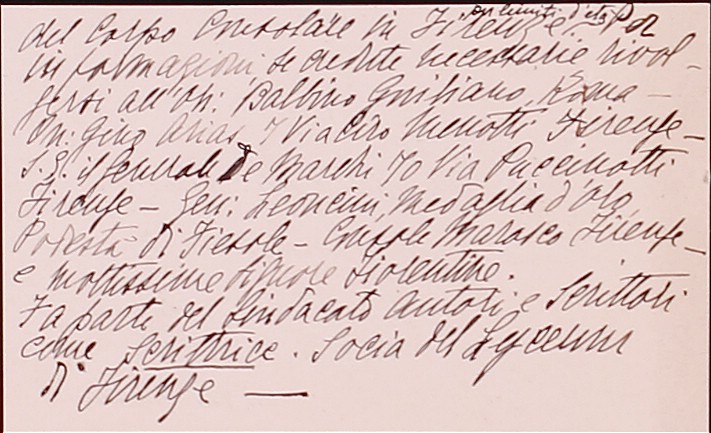 per limiti d'età
del Corpo Consolare in Firenze. Per
informazioni, se credete necessarie rivol-
gersi all'On: Balbino Giuliano, Roma -
On: Gino Arias, 7 Via Ciro Menotti Firenze -
S. E. il Generale De Marchi 70 Via Puccinotti
Firenze - Gen: Leoncini, Medaglia d'Oro,
Podestà di Fiesole - Console Marasco Firenze -
e moltissime signore fiorentine.
Fa parte del Sindacato Autori e Scrittori
come Scrittrice. Socia del Lyceum
di Firenze —